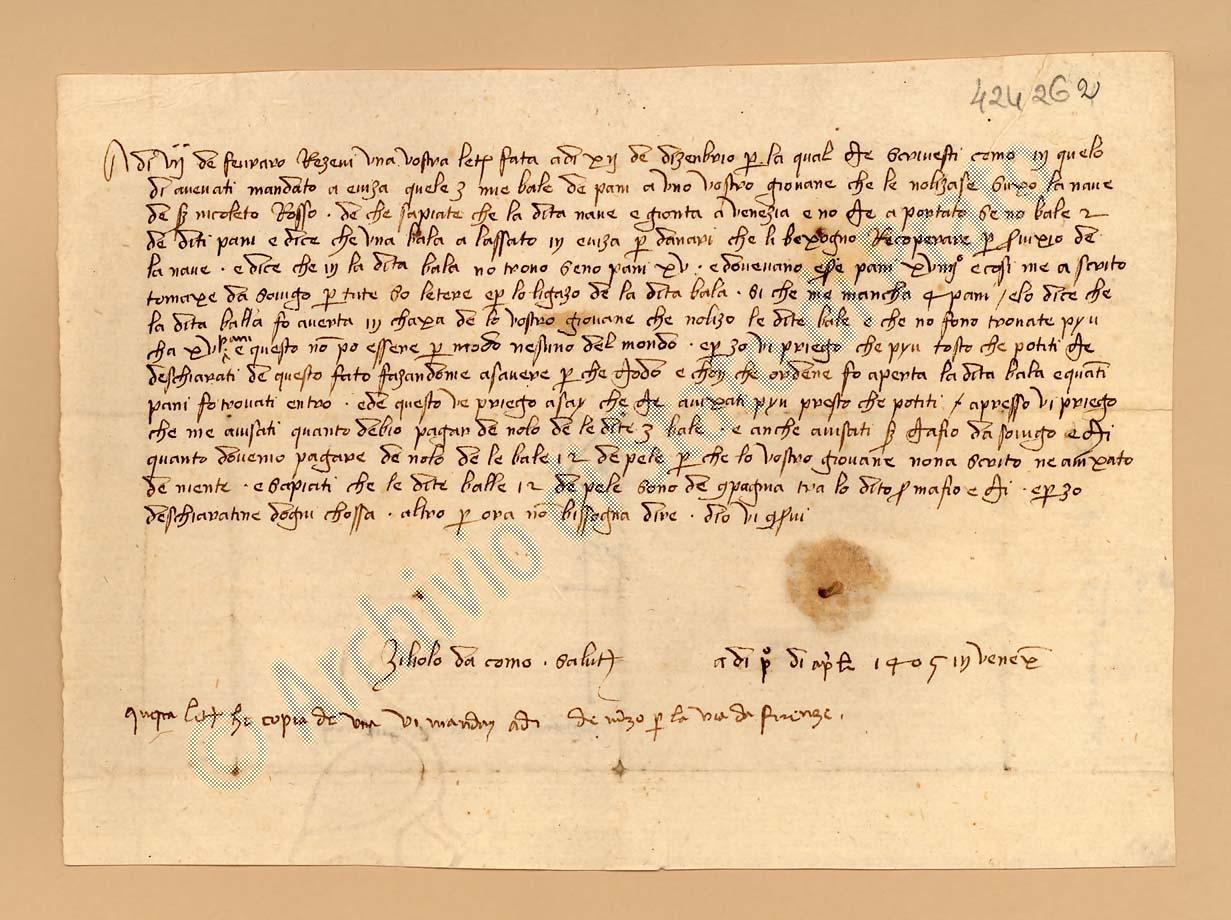 424262
Adi VII de fevraro rezevi una vostra letera fata adi XII de dizenbrio per la qual me scrivesti como in quelo
di avevati mandato a eviza quele 3 mie bale de pani a uno vostro giovane che le nolizase suxo la nave
de ser nicoleto Rosso · de che sapiate che la dita nave e gionta a venezia e no me a portato se no bale 2
de diti pani e dice che una bala a lassato in eviza per danari che li bexogno recoperare per servixio de
la nave · e dice che in la dita bala no trovo seno pani XV · e dovevano esse pani XVIIII° e cosi me a scrito
tomaxe da sovigo per tute so letere e per lo ligazo de la dita bala · si che me mancha 4 pani / elo dice che
la dita balla fo averta in chaxa de lo vostro giovane che nolizo le dite bale e che no fono trovate pyu
cha XV pani e questo non po essere per modo nesuno del mondo · e per zo vi priego che pyu tosto che potiti me
deschiarati de questo fato fazandome asavere per che modo e chon che ordene fo aperta la dita bala e quati
pani fo trovati entro · e de questo ve priego asay che me avixati pyu presto che potiti / apresso vi priego
che me avisati quanto debio pagar de nolo de le dite 3 bale · e anche avisati ser mafio da sovigo e mi
quanto dovemo pagare de nolo de le bale 12 de pele per che lo vostro giovane nona scrito ne avixato
de niente · e sapiati che le dite balle 12 de pele sono de conpagnia tra lo dito ser mafio e mi · e per zo
deschiaratine dognu chossa · altro per ora non bissogna dire · dio vi conservi
Ziliolo da como · salute adi po di aprile 1405 in venexia
questa letera he copia de una vi manday adi de marzo per la via da firenze ·
© Archivio di